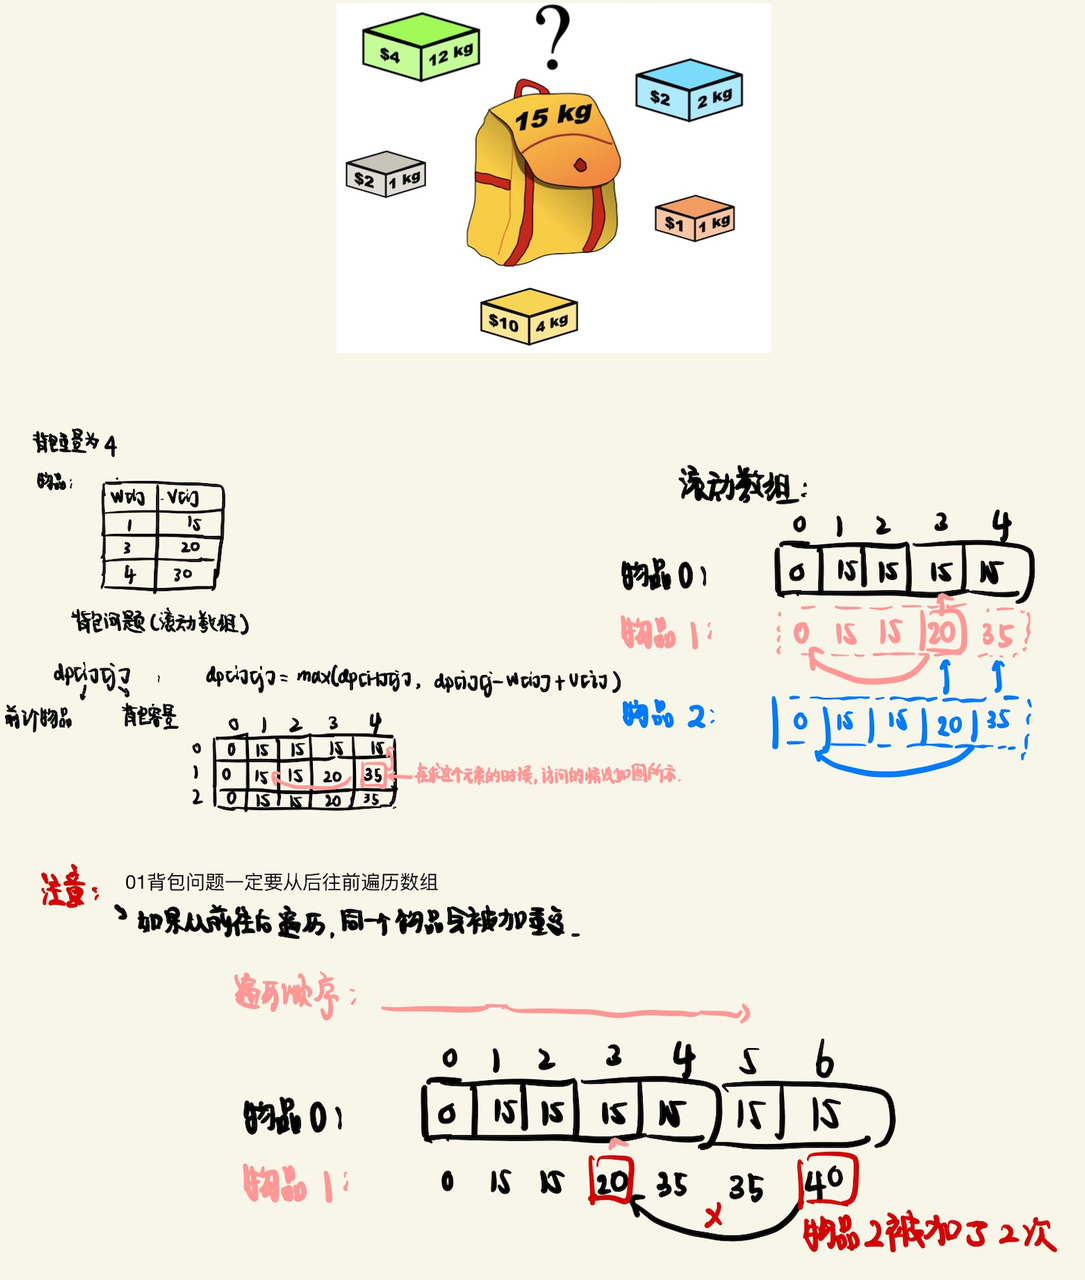 ?
$4 12 kg
15 kg
$2 2 kg
$2 1 kg
$1 1 kg
$10 4 kg
背包重量为4
物品:
w[i] v[i]
1 15
3 20
4 30
背包问题(滚动数组)
dp[i][j], dp[i][j] = max(dp[i-1][j], dp[i][j-w[i]]+v[i])
前i个物品 背包容量
0 1 2 3 4
0 0 15 15 15 15
1 0 15 15 20 35
2 0 15 15 20 35
在求这个元素的时候,访问的情况如图所示.
滚动数组:
0 1 2 3 4
物品0: 0 15 15 15 15
物品1: 0 15 15 20 35
物品2: 0 15 15 20 35
注意: 01背包问题一定要从后往前遍历数组
如果从前往后遍历,同一个物品会被加重复.
遍历顺序:
0 1 2 3 4 5 6
物品0: 0 15 15 15 15 15 15
物品1: 0 15 15 20 35 35 40
x
物品2被加了2次